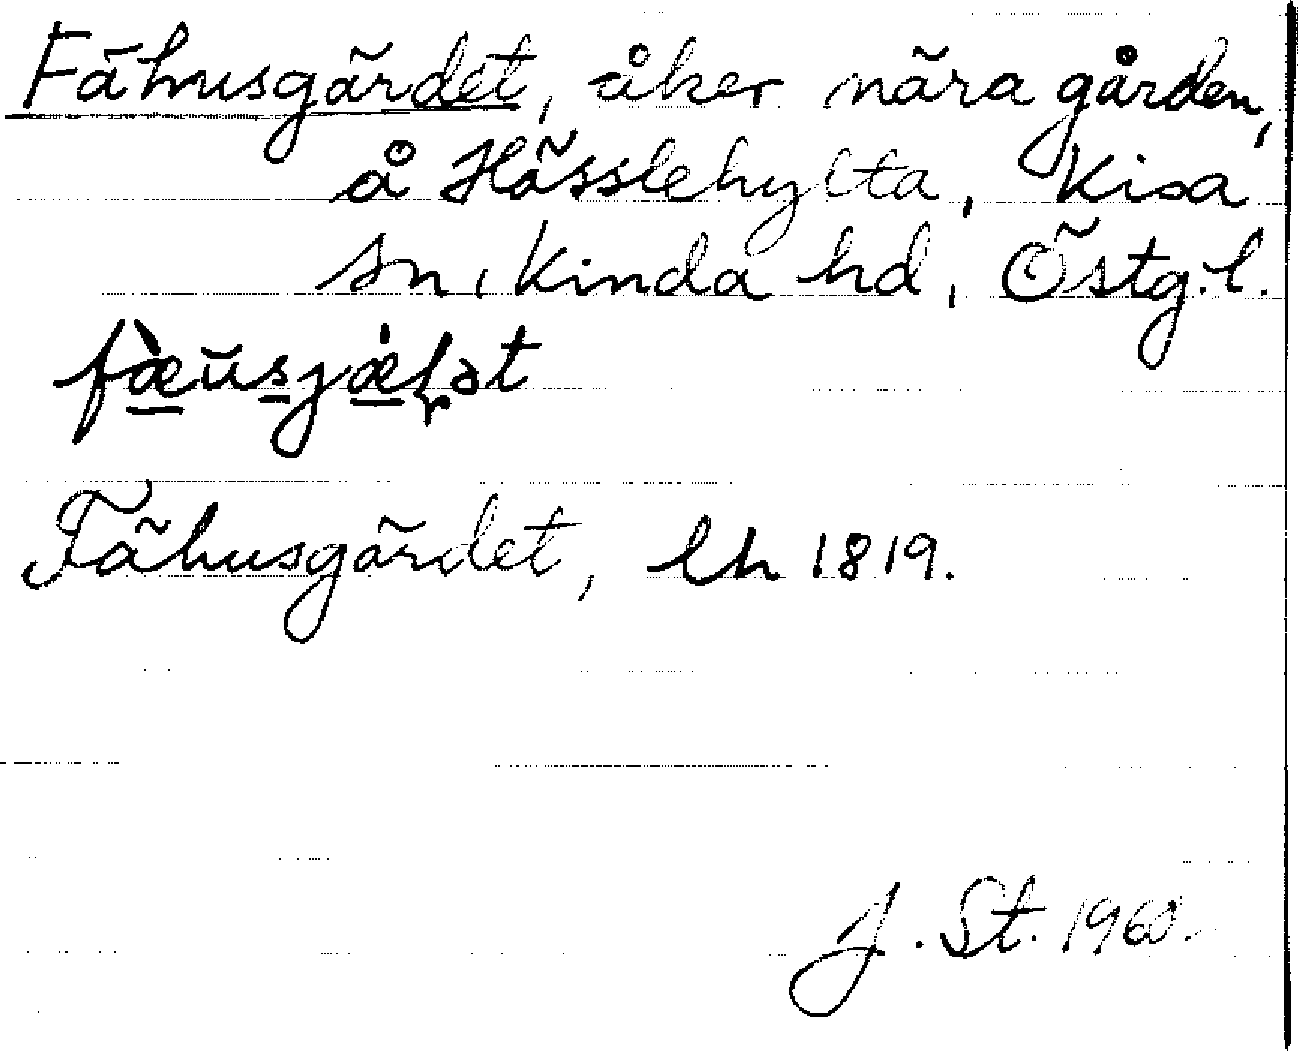 Fähusgärdet, åker nära gården,
å Hässlehylta, Kisa
sn, Kinda hd, Östg.l.
fæ̀ŭsjæ̍ɽət
Fähusgärdet, lh 1819.
J. St. 1960.